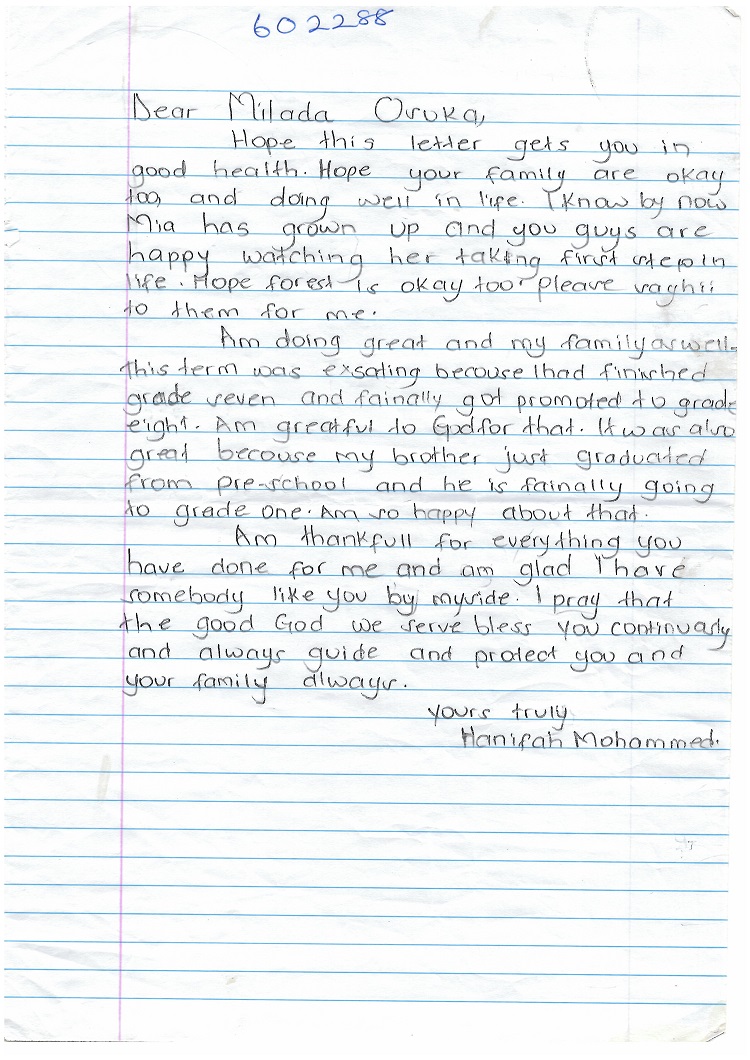 602288
Dear Milada Oruka,
Hope this letter gets you in
good health. Hope your family are okay
too, and doing well in life. I know by now
Mia has grown up and you guys are
happy watching her taking first step in
life. Hope forest is okay too please
to them for me.
Am doing great and my family aswell.
this term was exsating becouse I had finished
grade seven and fainally got promoted to grade
eight. Am greatful to God for that. It was also
great becouse my brother just graduated
from pre-school and he is fainally going
to grade one. Am so happy about that.
Am thankfull for everything you
have done for me and am glad I have
somebody like you by myside. I pray that
the good God we serve bless you continuasly
and always guide and protect you and
your family always.
yours truly
Hanifah Mohammed.